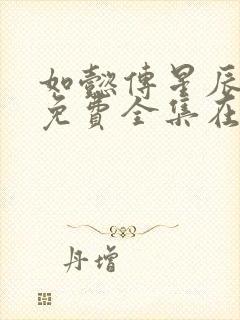 如懿傅星辰
免费全集在
丹增